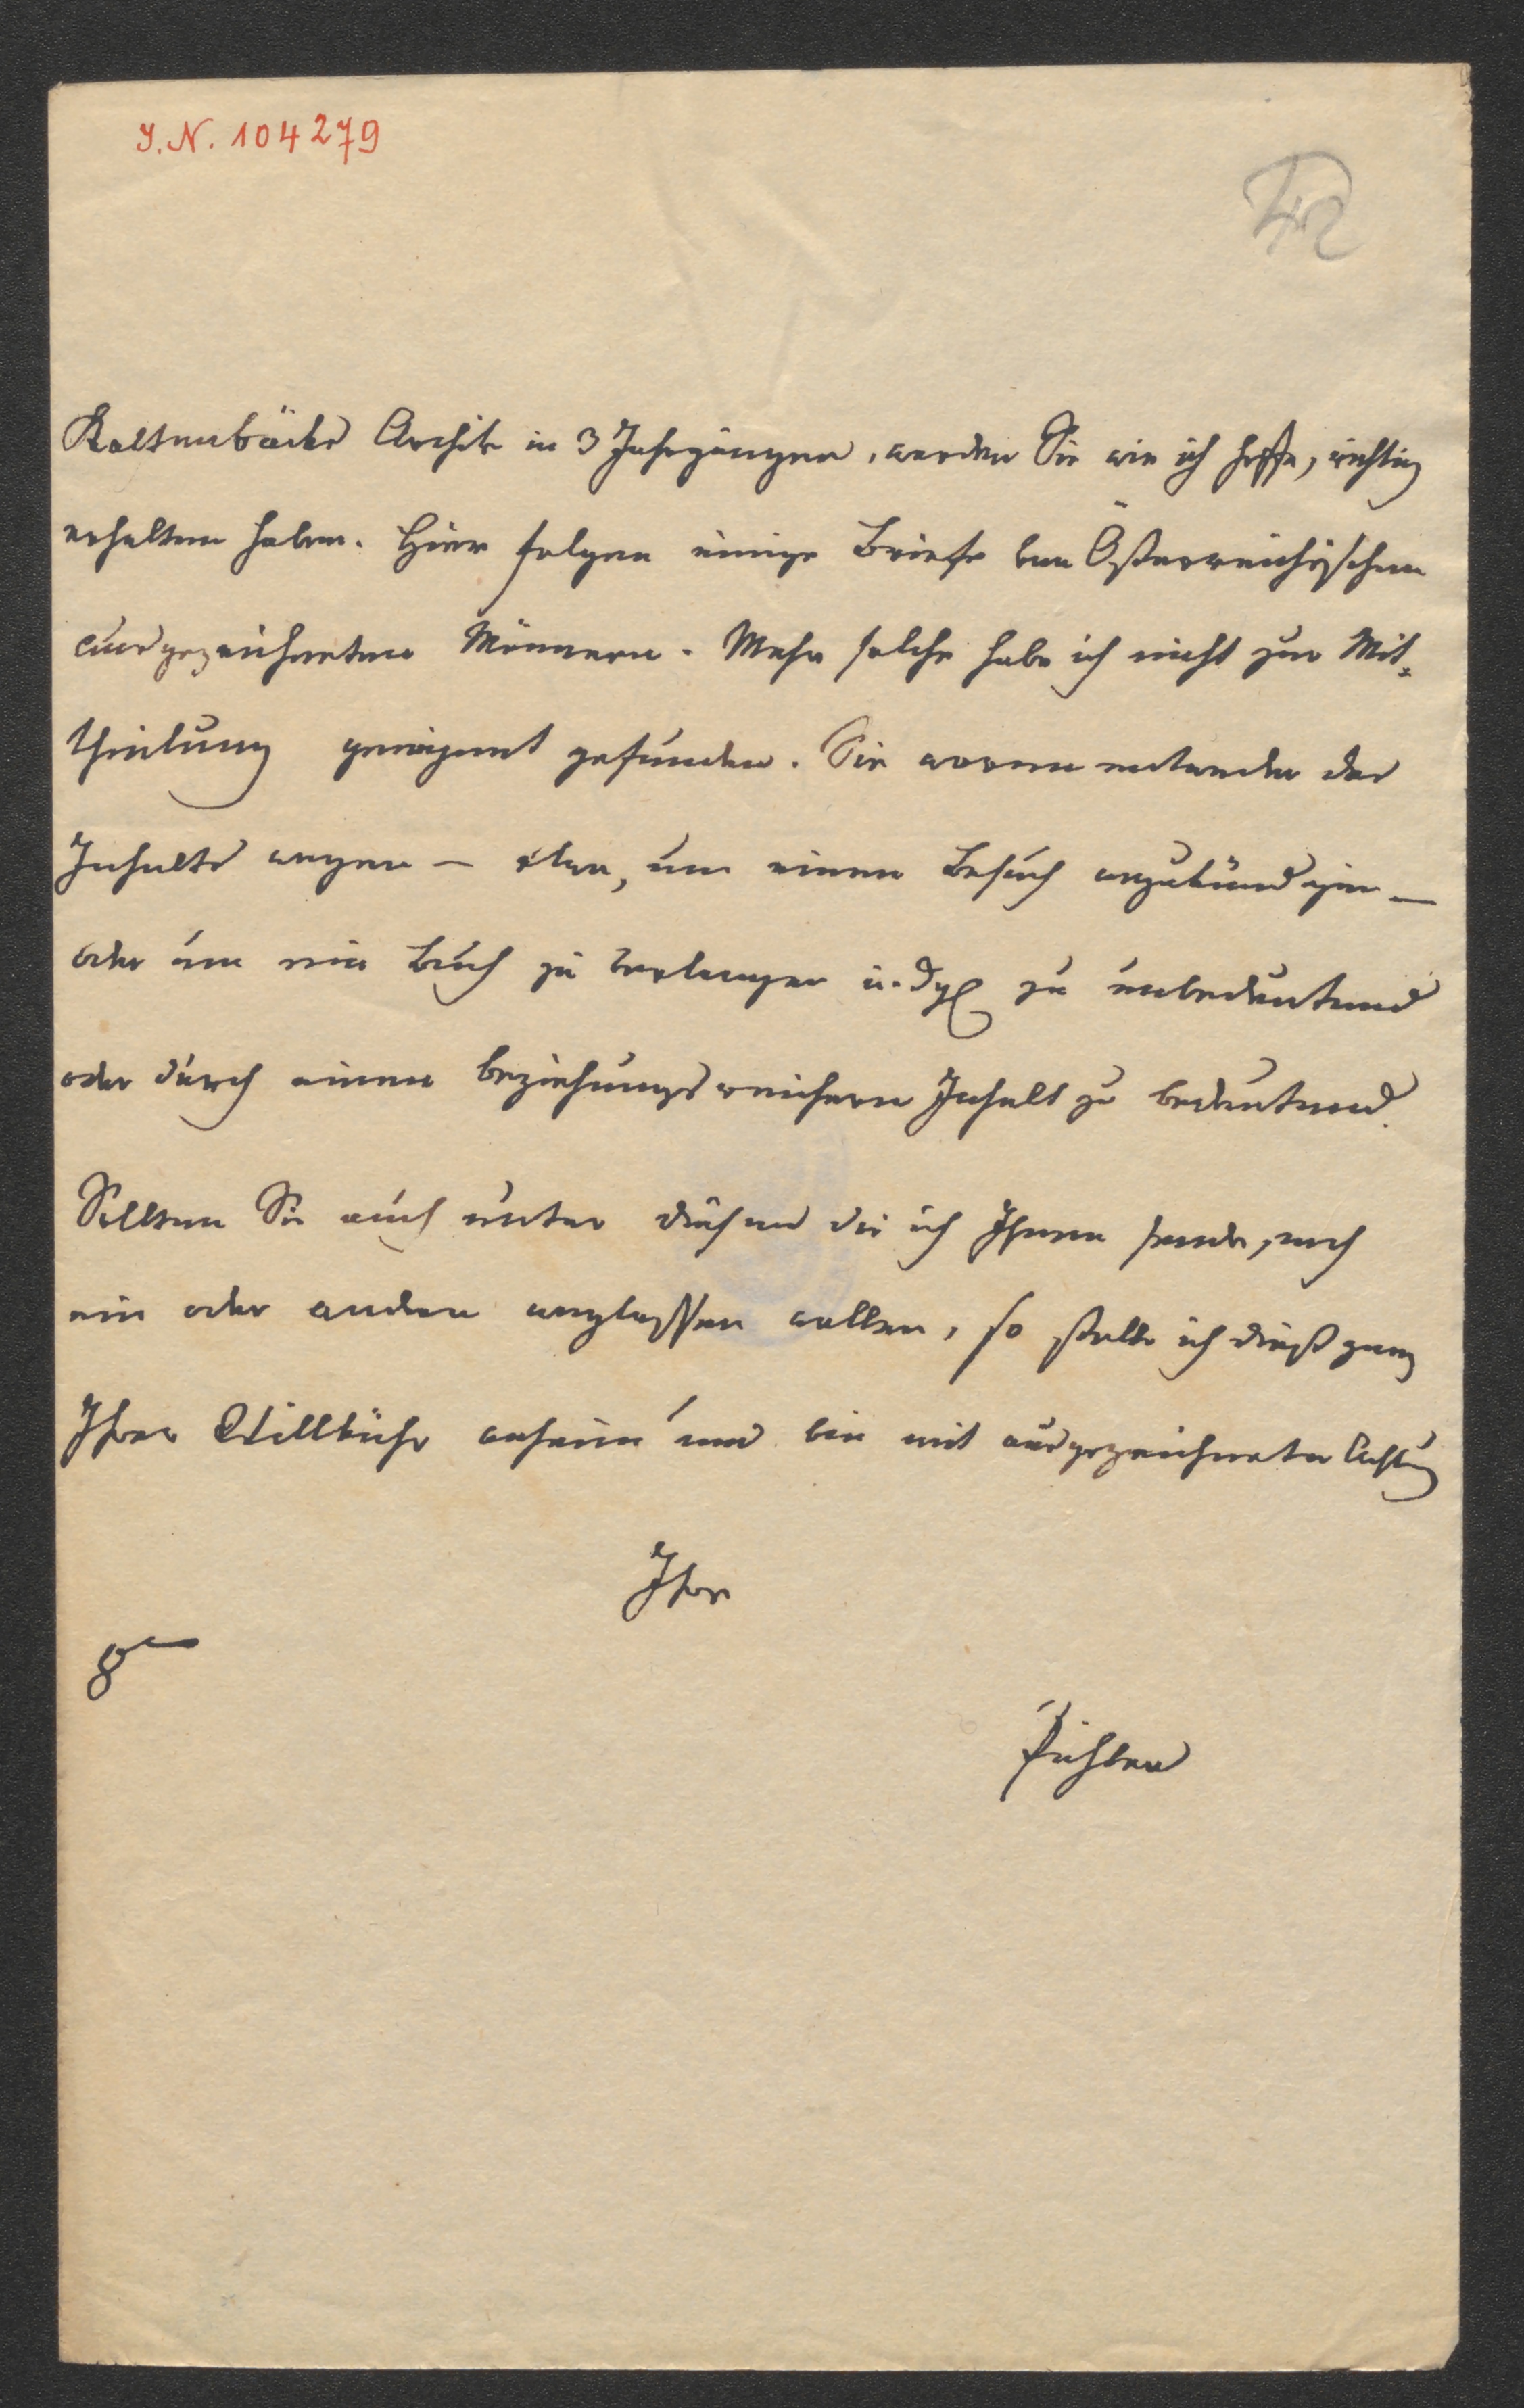 J.N. 104279
Kaltenbäcks Archiv in 3 Jahrgängen, werden Sie wie ich hoffe, richtig
erhalten haben. Hier folgen einige Briefe von Österreichischen
ausgezeichneten Männern. Mehr solche habe ich nicht zur Mit=
theilung geeignet gefunden. Sie waren entweder des
Inhalts wegen – etwa, um einen Besuch anzukündigen –
oder um ein Buch zu verlangen u. dgl zu unbedeutend
oder durch einen beziehungsreichern Inhalt zu bedeutend.
Sollten Sie auch unter diesen die ich Ihnen sende, noch
ein oder andern weglassen wollen, so stelle ich dieß ganz
Ihrer Willkühr anheim und bin mit ausgezeichneter Achtung
Ihr